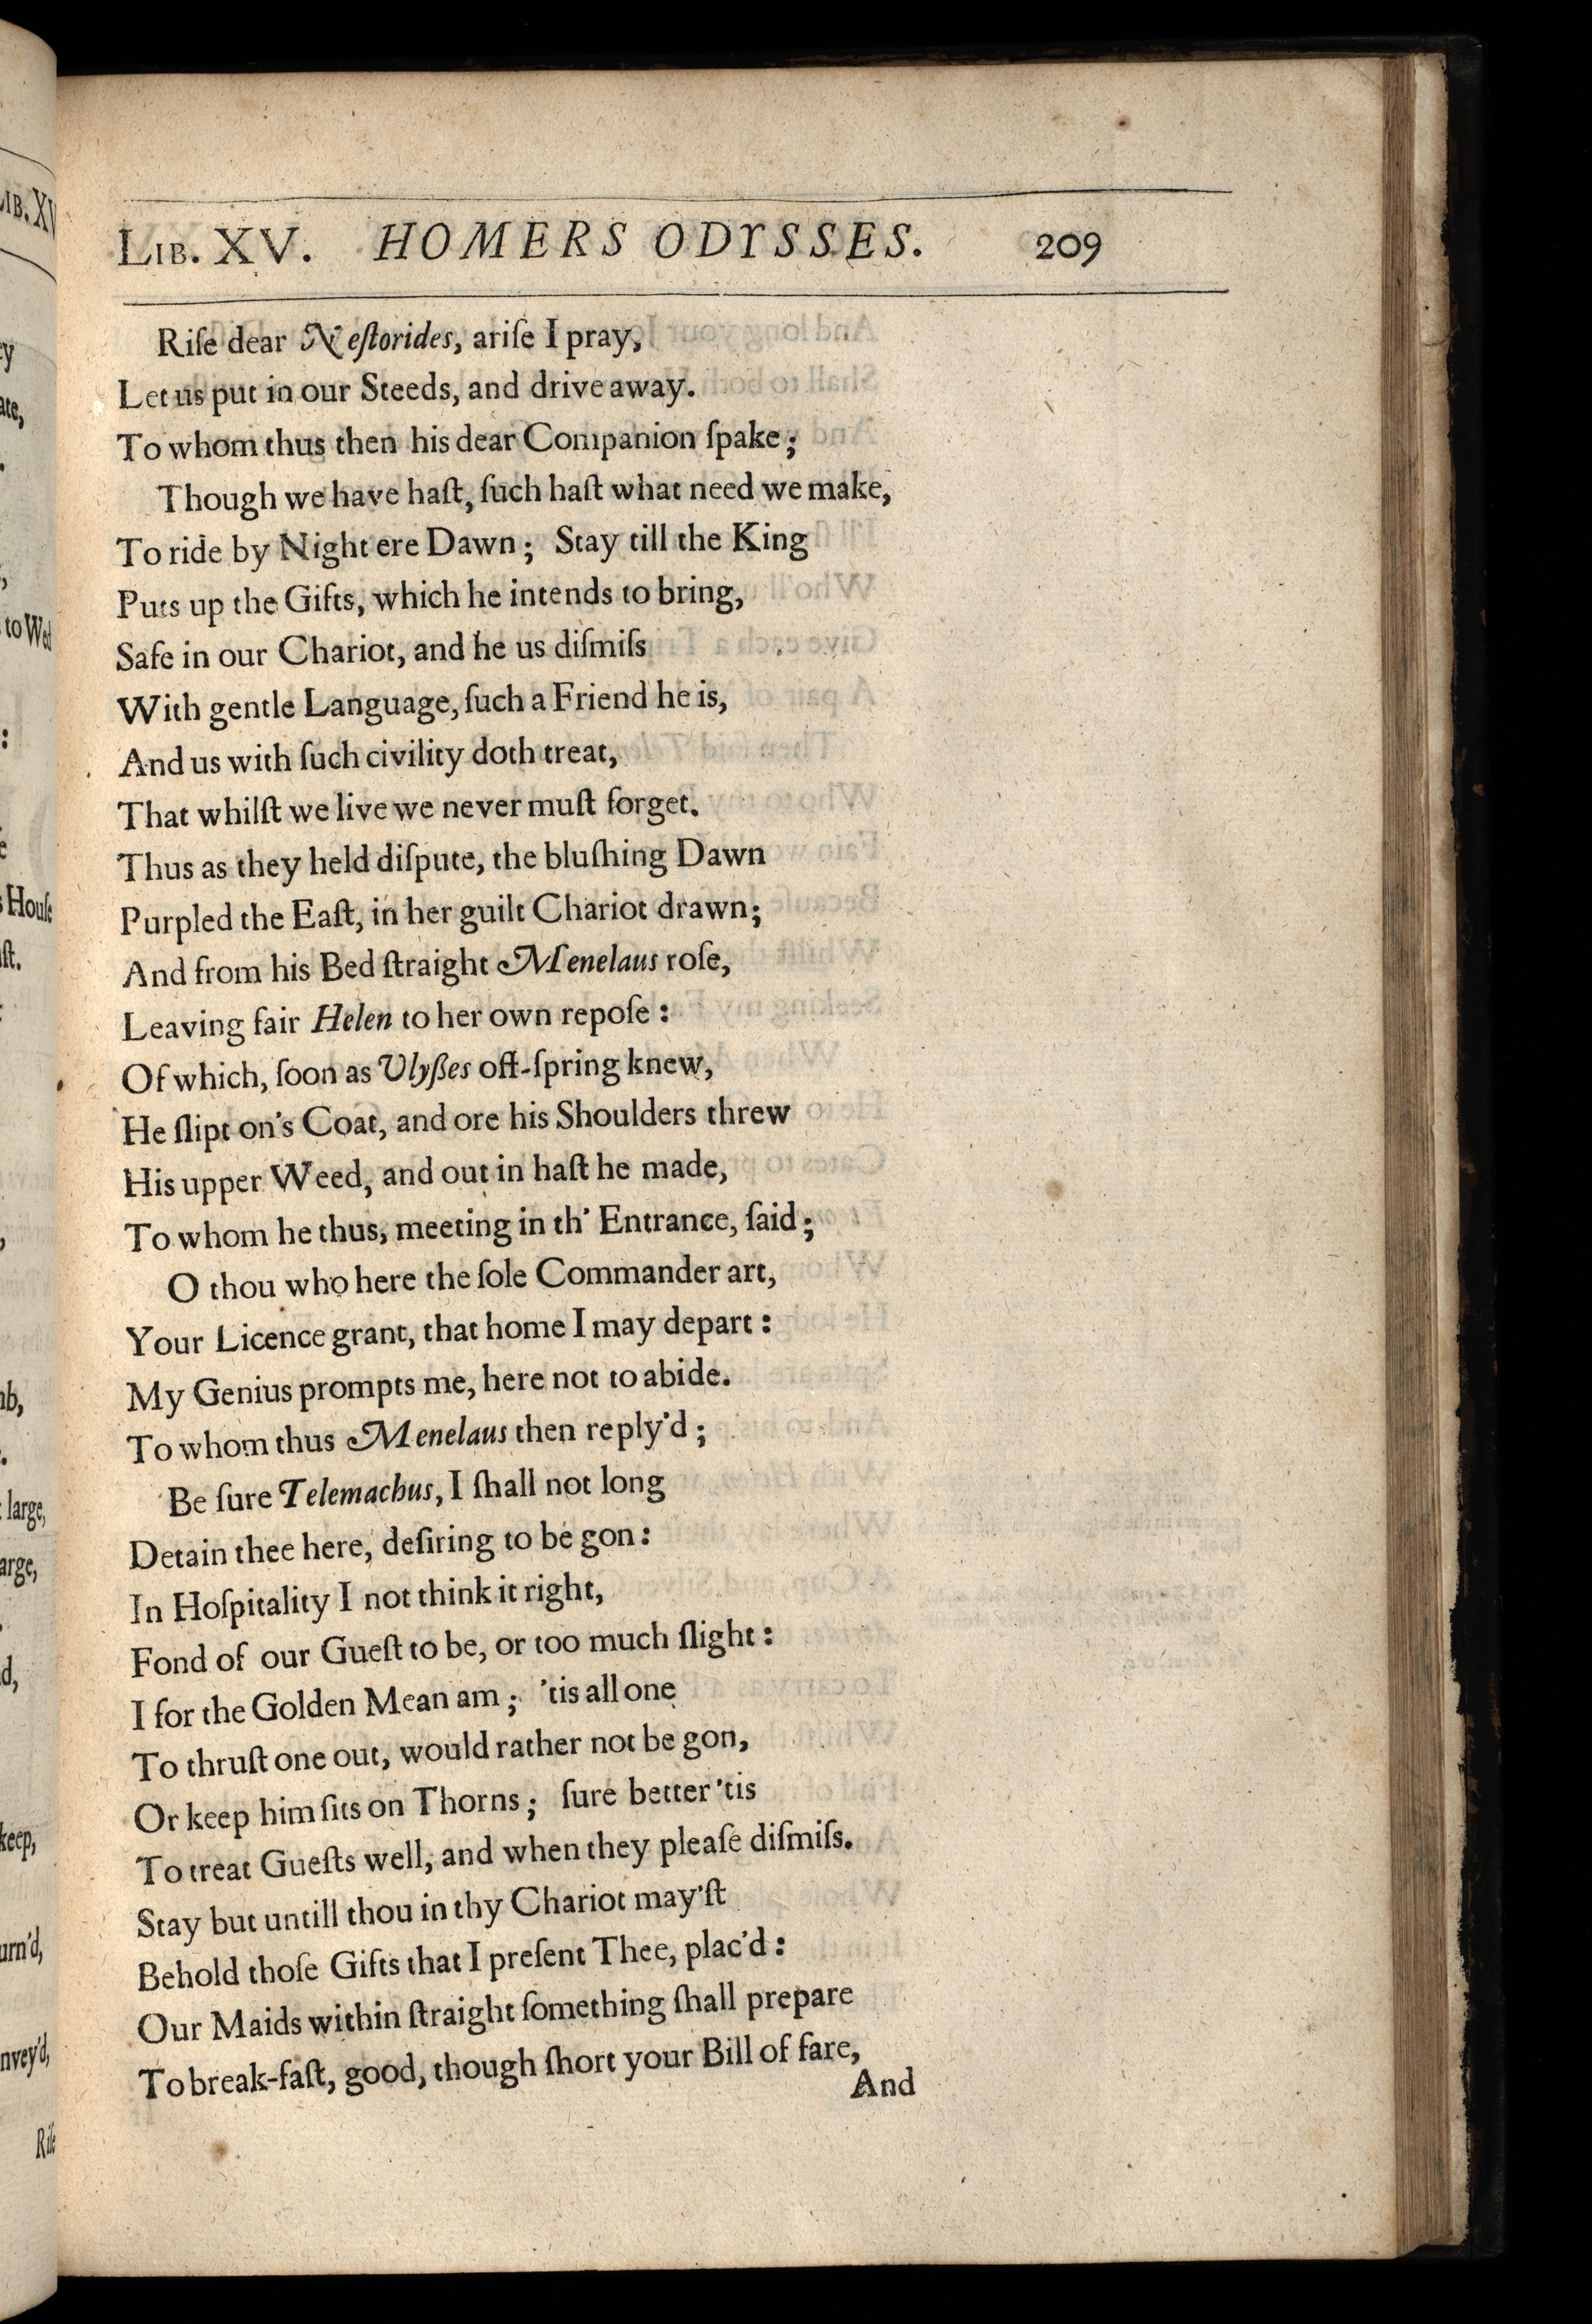 LIB. XV. HOMERS ODYSSES. 209
Riſe dear Neſtorides, ariſe I pray,
Let us put in our Steeds, and drive away.
To whom thus then his dear Companion ſpake;
Though we have haſt, ſuch haſt what need we make,
To ride by Night ere Dawn; Stay till the King
Puts up the Gifts, which he intends to bring,
Safe in our Chariot, and he us diſmiſs
With gentle Language, ſuch a Friend he is,
And us with ſuch civility doth treat,
That whilſt we live we never muſt forget.
Thus as they held diſpute, the bluſhing Dawn
Purpled the Eaſt, in her guilt Chariot drawn;
And from his Bed ſtraight Menelaus roſe,
Leaving fair Helen to her own repoſe:
Of which, ſoon as Ulyßes off-ſpring knew,
He ſlipt on's Coat, and ore his Shoulders threw
His upper Weed, and out in haſt he made,
To whom he thus, meeting in th' Entrance, ſaid;
O thou who here the ſole Commander art,
Your Licence grant, that home I may depart:
My Genius prompts me, here not to abide.
To whom thus Menelaus then reply'd;
Be ſure Telemachus, I ſhall not long
Detain thee here, deſiring to be gon:
In Hoſpitality I not think it right,
Fond of our Gueſt to be, or too much ſlight:
I for the Golden Mean am; 'tis all one
To thruſt one out, would rather not be gon,
Or keep him ſits on Thorns; ſure better 'tis
To treat Gueſts well, and when they pleaſe diſmiſs.
Stay but untill thou in thy Chariot may'ſt
Behold thoſe Gifts that I preſent Thee, plac'd:
Our Maids within ſtraight ſomething ſhall prepare
To break-faſt, good, though ſhort your Bill of fare,
And